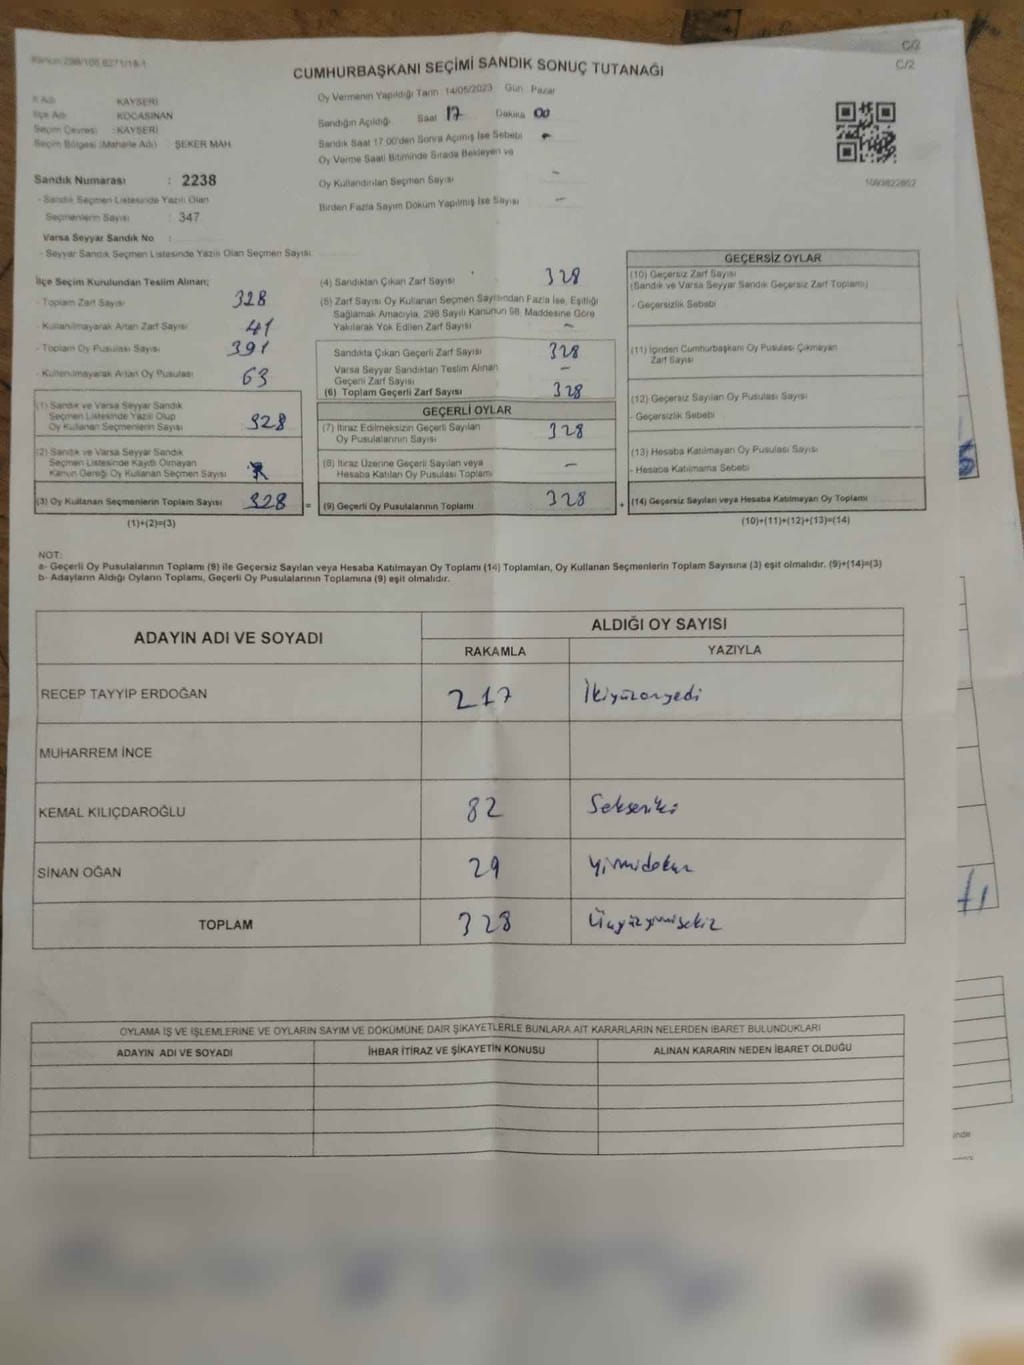 C/2
C/2
CUMHURBAŞKANI SEÇİMİ SANDIK SONUÇ TUTANAĞI
İl Adı KAYSERİ
İlçe Adı KOCASİNAN
Seçim Çevresi : KAYSERİ
Seçim Bölgesi (Mahalle Adı) ŞEKER MAH.
Oy Vermenin Yapıldığı Tarih : 14/05/2023 Gün : Pazar
Sandığın Açıldığı Saat 17 Dakika 00
Sandık Saat 17.00'den Sonra Açılmış İse Sebebi -
Oy Verme Saati Bitiminde Sırada Bekleyen ve
Oy Kullandırılan Seçmen Sayısı -
Birden Fazla Sayım Döküm Yapılmış İse Sayısı -
1093822802
Sandık Numarası : 2238
- Sandık Seçmen Listesinde Yazılı Olan
Seçmenlerin Sayısı : 347
Varsa Seyyar Sandık No :
- Seyyar Sandık Seçmen Listesinde Yazılı Olan Seçmen Sayısı
İlçe Seçim Kurulundan Teslim Alınan;
- Toplam Zarf Sayısı 328
- Kullanılmayarak Artan Zarf Sayısı 41
- Toplam Oy Pusulası Sayısı 391
- Kullanılmayarak Artan Oy Pusulası 63
(1) Sandık ve Varsa Seyyar Sandık
Seçmen Listesinde Yazılı Olup
Oy Kullanan Seçmenlerin Sayısı 328
(2) Sandık ve Varsa Seyyar Sandık
Seçmen Listesinde Kayıtlı Olmayan
Kanun Gereği Oy Kullanan Seçmen Sayısı
(3) Oy Kullanan Seçmenlerin Toplam Sayısı 328 =
(1)+(2)=(3)
(4) Sandıktan Çıkan Zarf Sayısı 328
(5) Zarf Sayısı Oy Kullanan Seçmen Sayısından Fazla İse, Eşitliği
Sağlamak Amacıyla, 298 Sayılı Kanunun 98. Maddesine Göre
Yakılarak Yok Edilen Zarf Sayısı -
Sandıkta Çıkan Geçerli Zarf Sayısı 328
Varsa Seyyar Sandıktan Teslim Alınan
Geçerli Zarf Sayısı -
(6) Toplam Geçerli Zarf Sayısı 328
GEÇERLİ OYLAR
(7) İtiraz Edilmeksizin Geçerli Sayılan
Oy Pusulalarının Sayısı 328
(8) İtiraz Üzerine Geçerli Sayılan veya
Hesaba Katılan Oy Pusulası Toplamı -
(9) Geçerli Oy Pusulalarının Toplamı 328 +
GEÇERSİZ OYLAR
(10) Geçersiz Zarf Sayısı
(Sandık ve Varsa Seyyar Sandık Geçersiz Zarf Toplamı)
- Geçersizlik Sebebi
(11) İçinden Cumhurbaşkanı Oy Pusulası Çıkmayan
Zarf Sayısı
(12) Geçersiz Sayılan Oy Pusulası Sayısı
- Geçersizlik Sebebi
(13) Hesaba Katılmayan Oy Pusulası Sayısı
- Hesaba Katılmama Sebebi
(14) Geçersiz Sayılan veya Hesaba Katılmayan Oy Toplamı
(10)+(11)+(12)+(13)=(14)
NOT:
a- Geçerli Oy Pusulalarının Toplamı (9) ile Geçersiz Sayılan veya Hesaba Katılmayan Oy Toplamı (14) Toplamları, Oy Kullanan Seçmenlerin Toplam Sayısına (3) eşit olmalıdır. (9)+(14)=(3)
b- Adayların Aldığı Oyların Toplamı, Geçerli Oy Pusulalarının Toplamına (9) eşit olmalıdır.
ADAYIN ADI VE SOYADI ALDIĞI OY SAYISI
RAKAMLA YAZIYLA
RECEP TAYYİP ERDOĞAN 217 İkiyüzonyedi
MUHARREM İNCE
KEMAL KILIÇDAROĞLU 82 Sekseniki
SİNAN OĞAN 29 Yirmidokuz
TOPLAM 328 Üçyüzyirmisekiz
OYLAMA İŞ VE İŞLEMLERİNE VE OYLARIN SAYIM VE DÖKÜMÜNE DAİR ŞİKAYETLERLE BUNLARA AİT KARARLARIN NELERDEN İBARET BULUNDUKLARI
ADAYIN ADI VE SOYADI İHBAR İTİRAZ VE ŞİKAYETİN KONUSU ALINAN KARARIN NEDEN İBARET OLDUĞU